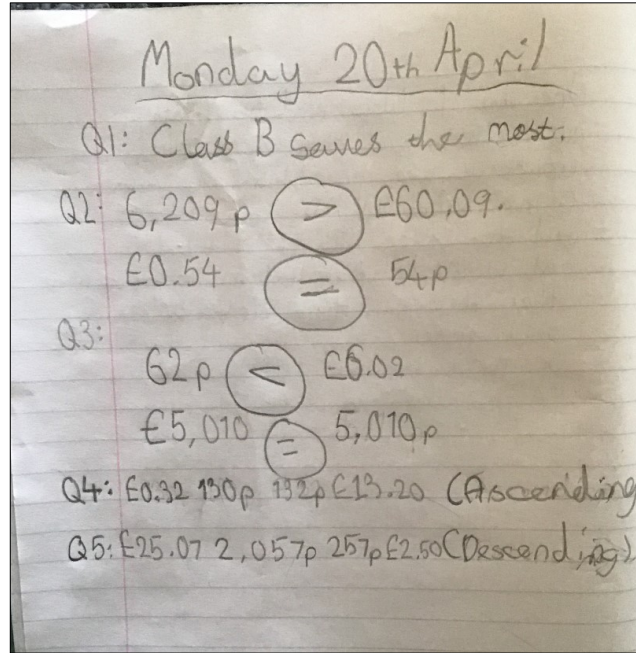 Monday 20th April
Q1: Class B saves the most.
Q2: 6,209p > £60.09.
£0.54 = 54p
Q3:
62p < £6.02
£5,010 = 5,010p
Q4: £0.32 130p 132p £13.20 (Ascending
Q5: £25.07 2,057p 257p £2.50 (Descending)